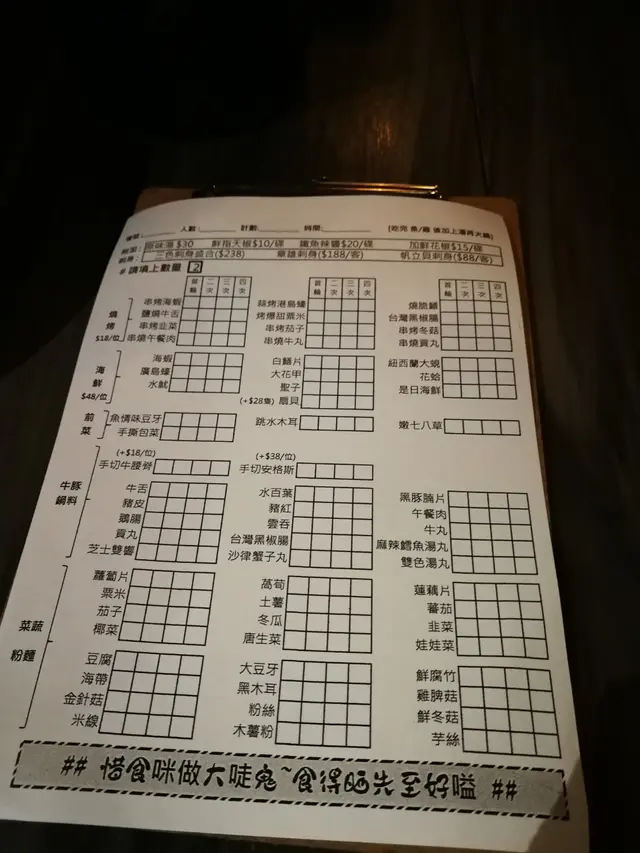 人數: 計數: 時間: [吃完 魚/雞 後加上湯再火鍋]
原味湯 $30 鮮指天椒$10/碟 鐵魚辣醬$20/碟 加鮮花椒$15/碟
刺身: 三色刺身盛合($238) 章雄刺身($188/客) 帆立貝刺身($88/客)
# 請填上數量 2
首輪 二次 三次 四次 首輪 二次 三次 四次 首輪 二次 三次 四次
燒烤 $18/位
串烤海蝦 蒜烤港島蠔 燒脆鱔
鹽燒牛舌 烤爆甜粟米 台灣黑椒腸
串烤韭菜 串烤茄子 串烤冬菇
串燒午餐肉 串燒牛丸 串燒貢丸
海鮮 $48/位
海蝦 白鱔片 紐西蘭大蜆
廣島蠔 大花甲 花蛤
水魷 聖子 是日海鮮
(+$28隻) 扇貝
前菜
魚情味豆牙 跳水木耳 嫩七八草
手撕包菜
牛豚鍋料
(+$18/位) (+$38/位)
手切牛腰脊 手切安格斯
牛舌 水百葉 黑豚腩片
豬皮 豬紅 午餐肉
鵝腸 雲吞 牛丸
貢丸 台灣黑椒腸 麻辣鱈魚湯丸
芝士雙響 沙律蟹子丸 雙色湯丸
菜蔬 粉麵
蘿蔔片 萵荀 蓮藕片
粟米 土薯 蕃茄
茄子 冬瓜 韭菜
椰菜 唐生菜 娃娃菜
豆腐 大豆牙 鮮腐竹
海帶 黑木耳 雞脾菇
金針菇 粉絲 鮮冬菇
米線 木薯粉 芋絲
## 惜食咪做大唗鬼~食得晒先至好嗌 ##